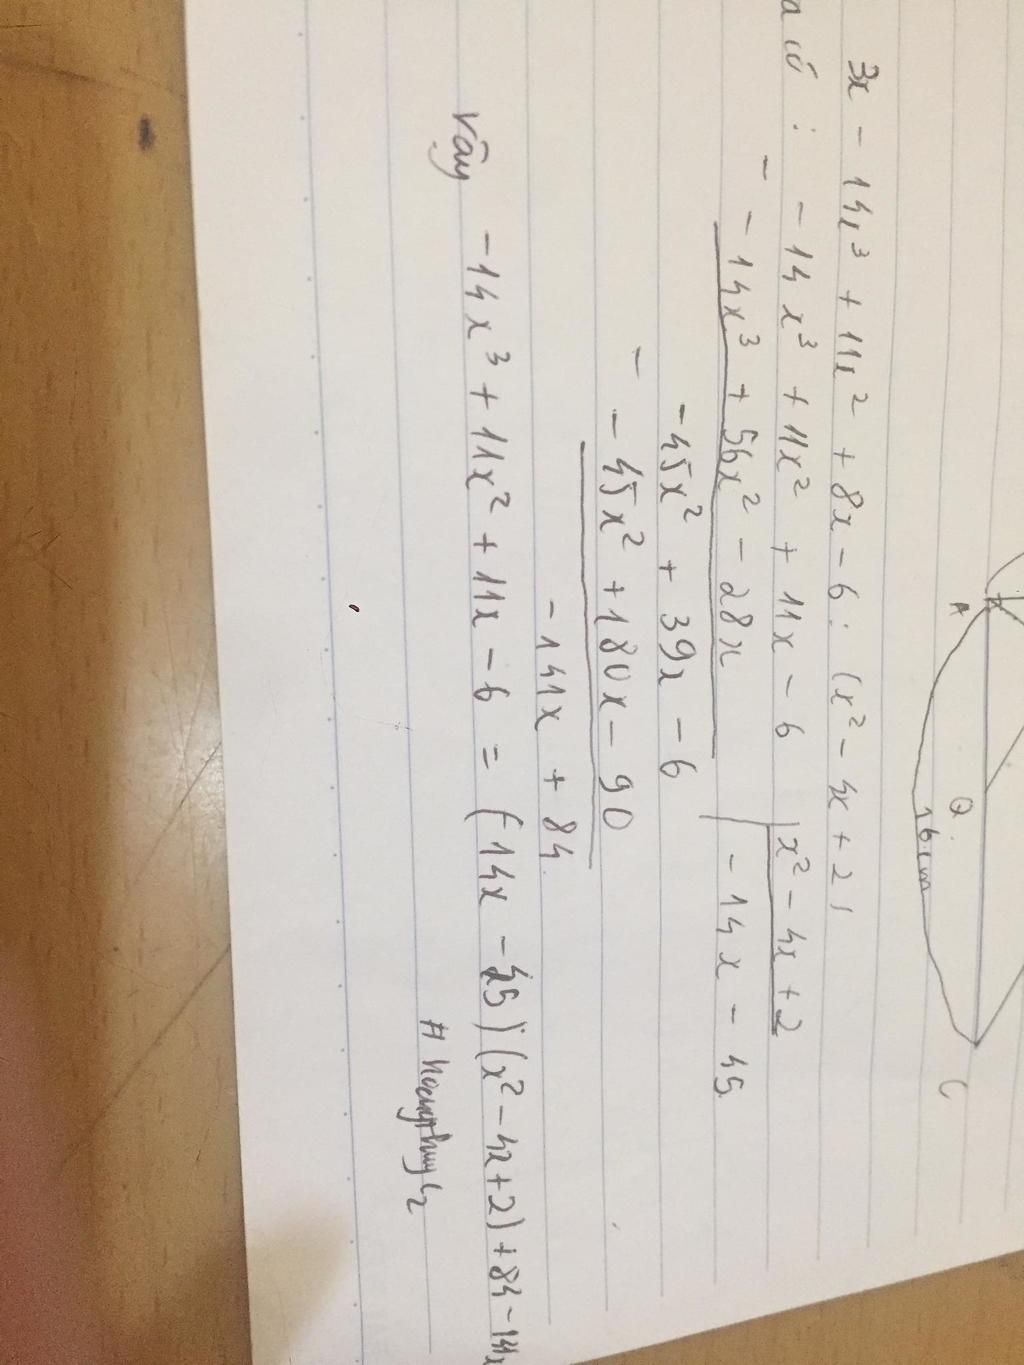 A
Q
16cm
C
3x - 14x³ + 11x² + 8x - 6 : (x² - 4x + 2)
a có : - 14x³ + 11x² + 11x - 6 | x² - 4x + 2
- - 14x³ + 56x² - 28x | - 14x - 45
- 45x² + 39x - 6
- - 45x² + 180x - 90
- 141x + 84
Vậy - 14x³ + 11x² + 11x - 6 = (-14x - 45)(x² - 4x + 2) + 84 - 141x